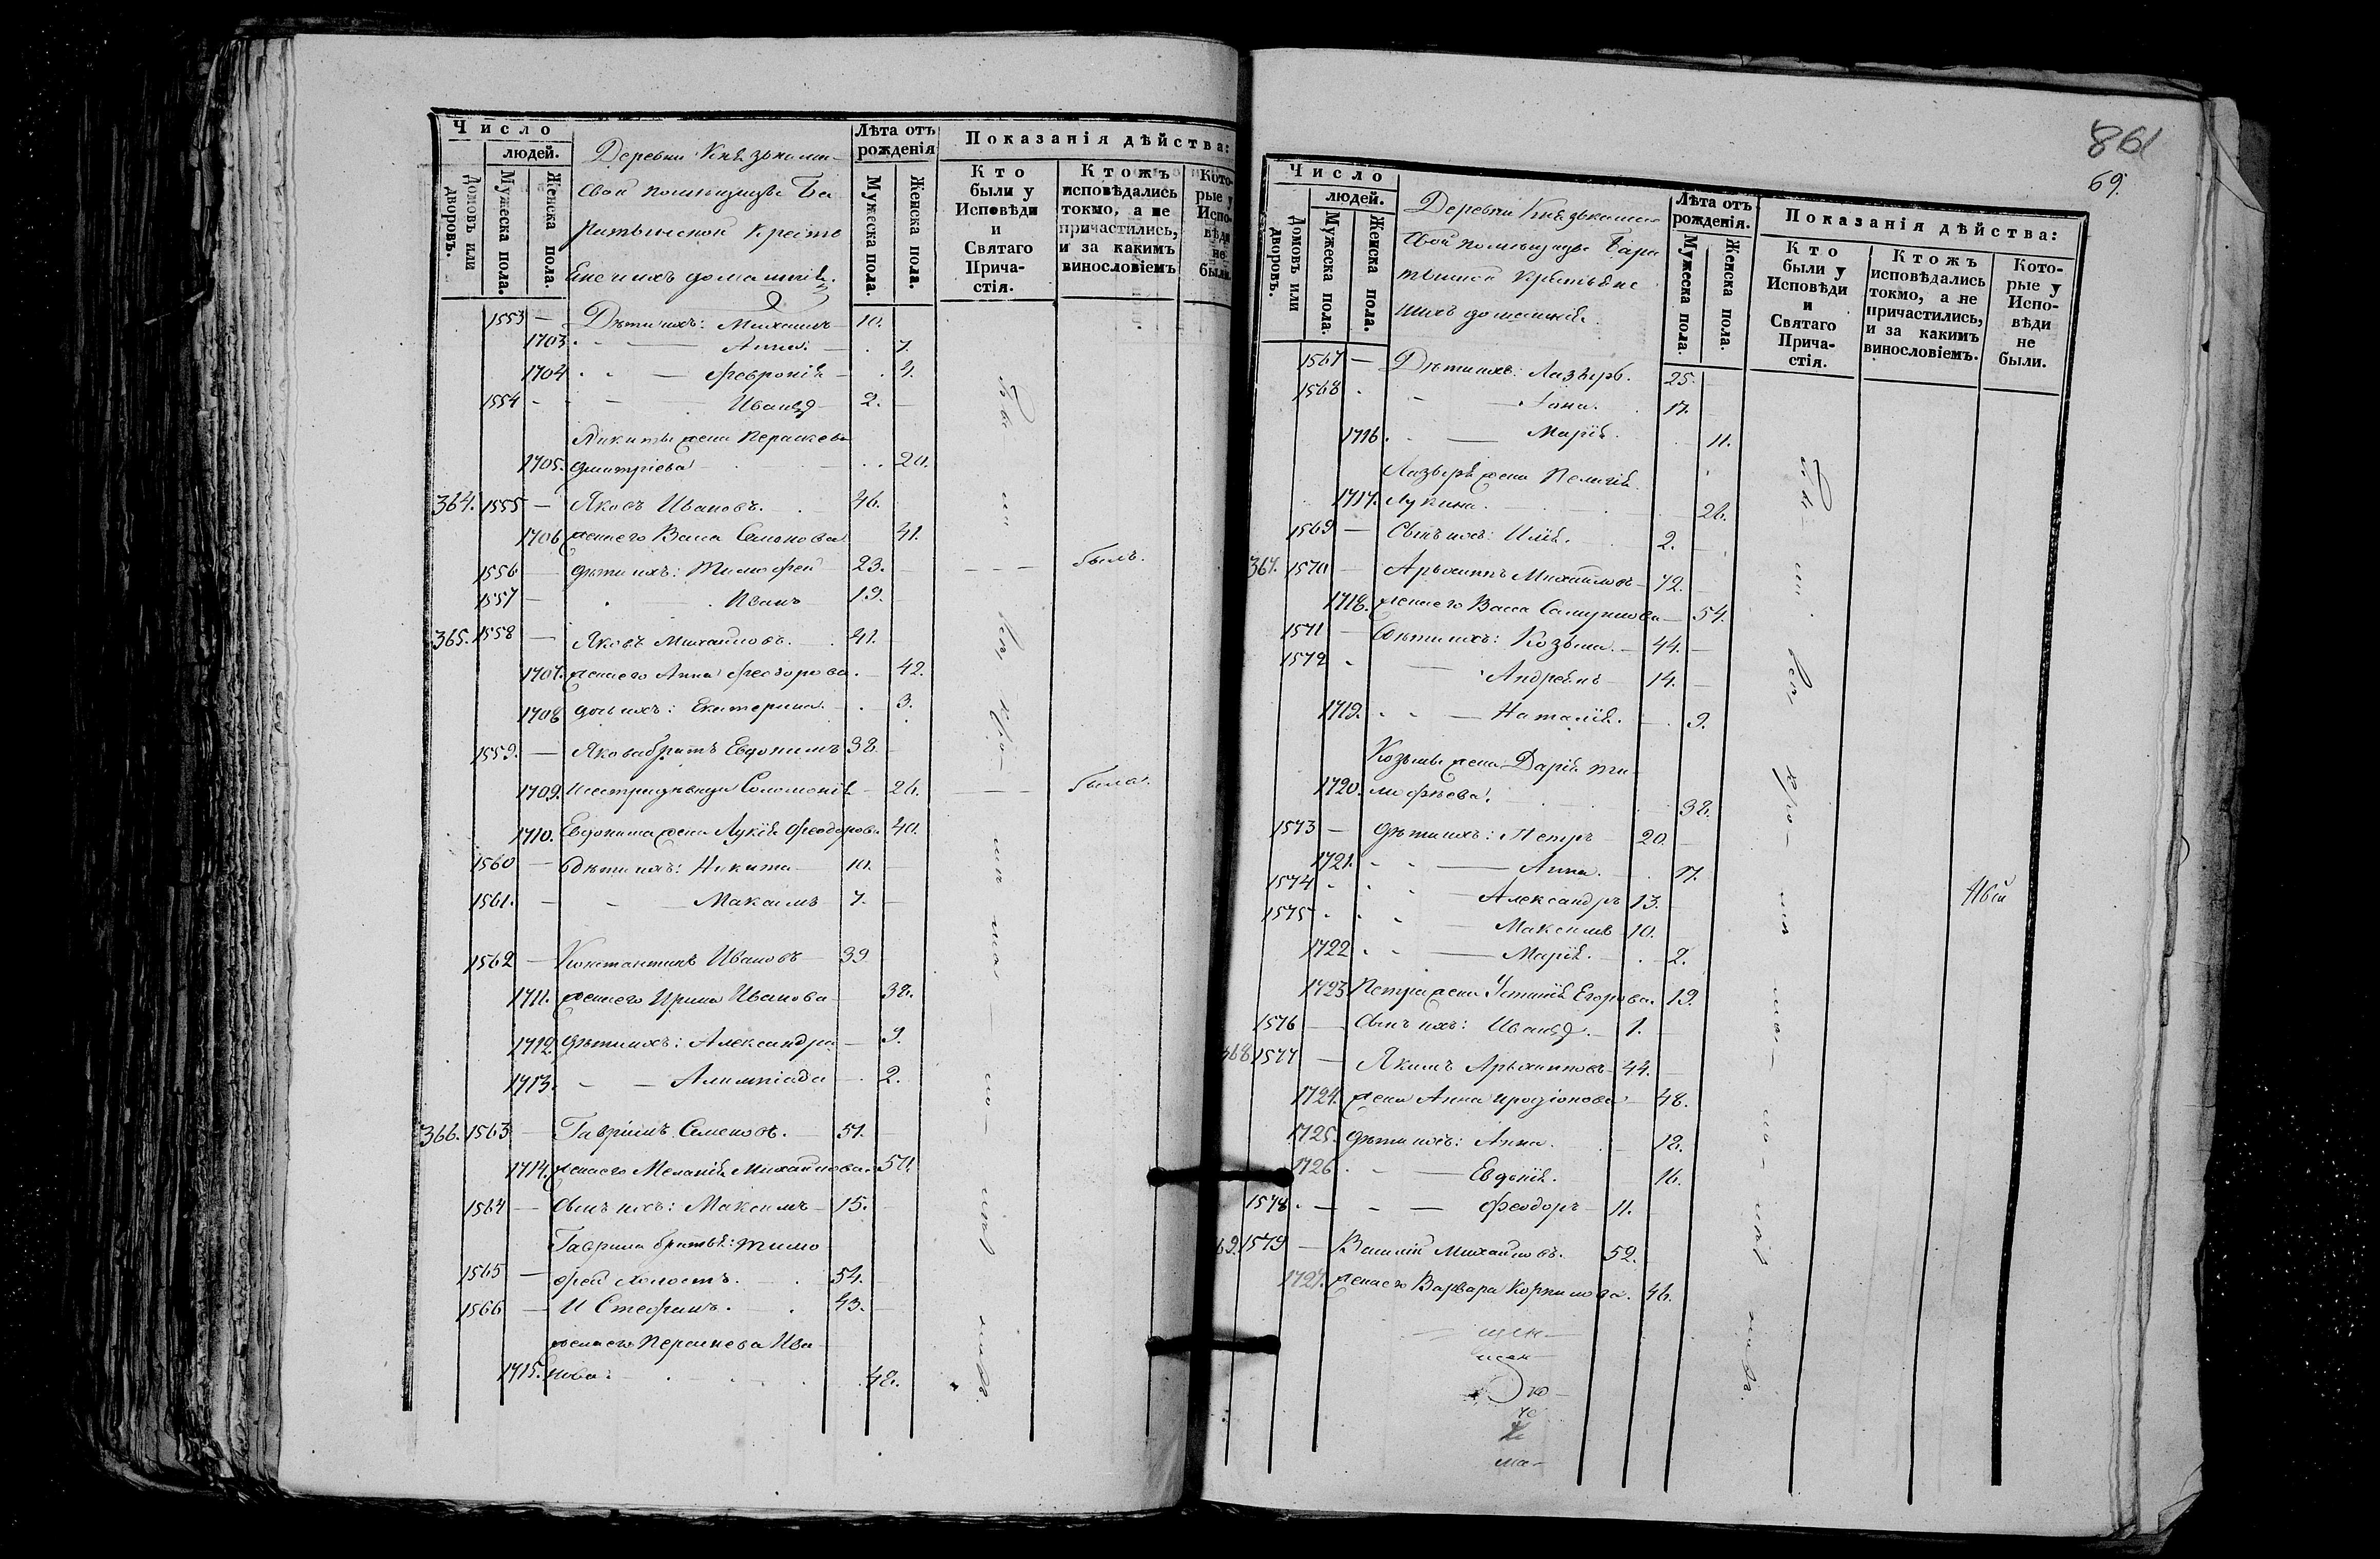 Число
людей.
Домовъ или дворовъ.
Мужеска пола.
Женска пола.
Деревни
свой помѣщицы Ба
Лѣта отъ рожденія
Мужеска пола.
Женска пола.
Показанія дѣйства:
Кто были у Исповѣди и Святаго Прича-стія.
Ктожъ исповѣдались токмо, а не причастились, и за какимъ винословіемъ
Кото-рые у Испо-вѣди не были.
1553 — Дѣти ихъ: Михаилъ 10.
1703. Анна. 7.
1704 Февронія 4.
1554 Иванъ 2.
Никиты жена Пераскева
1705. Дмитріева 20.
364. 1555 — Яковъ Ивановъ. 46.
1706 жена его Васса Семенова 41.
1556 — Дѣти ихъ: Тимофей 23. былъ.
1557 — Иванъ 19.
365. 1558 — Яковъ Михайловъ. 41.
1707. жена его Анна Феодорова. 42.
1708 дочь ихъ: Екатерина. 3.
1559. — Якова братъ Евдокимъ 38.
1709. Соломонія 26. была.
1710. Евдокима жена Лукія Феодорова 40.
1560 — Дѣти ихъ: Никита 10.
1561. — Максимъ 7.
1562 — Константинъ Ивановъ 39
1711. жена его Ирина Иванова 38.
1712. Дѣти ихъ: Александра 9.
1713. Алимпіада 2.
366. 1563 — Гавріилъ Семеновъ. 51.
1714. жена его Меланія Михайлова. 50.
1564 — Сынъ ихъ: Максимъ 15.
Гаврила братья: Тимо
1565 — фей холостъ. 54.
1566 — И Стефанъ. 43.
жена его Пераскева Ива
1715. нова. 48.
861
69.
Число
людей.
Домовъ или дворовъ.
Мужеска пола.
Женска пола.
Деревни
свой помѣщицы Бара
Лѣта отъ рожденія.
Мужеска пола.
Женска пола.
Показанія дѣйства:
Кто были у Исповѣди и Святаго Прича-стія.
Ктожъ исповѣдались токмо, а не причастились, и за какимъ винословіемъ.
Кото-рые у Испо-вѣди не были.
1567 — Дѣти ихъ: Лазарь. 25.
1568 Іона. 17.
1716. Марія. 11.
Лазаря жена Пелагія
1717. Лукина. 26.
1569 — Сынъ ихъ: Илія. 2.
367. 1570 — Архиппъ Михайловъ 72.
1718. жена его Васса Самуилова 54.
1571 — Дѣти ихъ: Козьма 44.
1572 Андреянъ 14.
1719. Наталія. 9.
Козьмы жена Дарія Ти
1720. мофѣева. 38.
1573 — Дѣти ихъ: Петръ 20.
1721. Анна. 17.
1574 Александръ 13.
1575 Максимъ 10.
1722 Марія. 2.
1723 Петра жена Устинія Егорова. 19.
1576 — Сынъ ихъ: Иванъ. 1.
368 1577 — Якимъ Архиповъ 44.
1724. жена Анна Иродіонова 48.
1725. Дѣти ихъ: Анна. 18.
1726 Евдокія. 16.
1578 Феодоръ 11.
69. 1579 — Василій Михайловъ. 52.
1727. жена его Варвара Корнилова. 46.